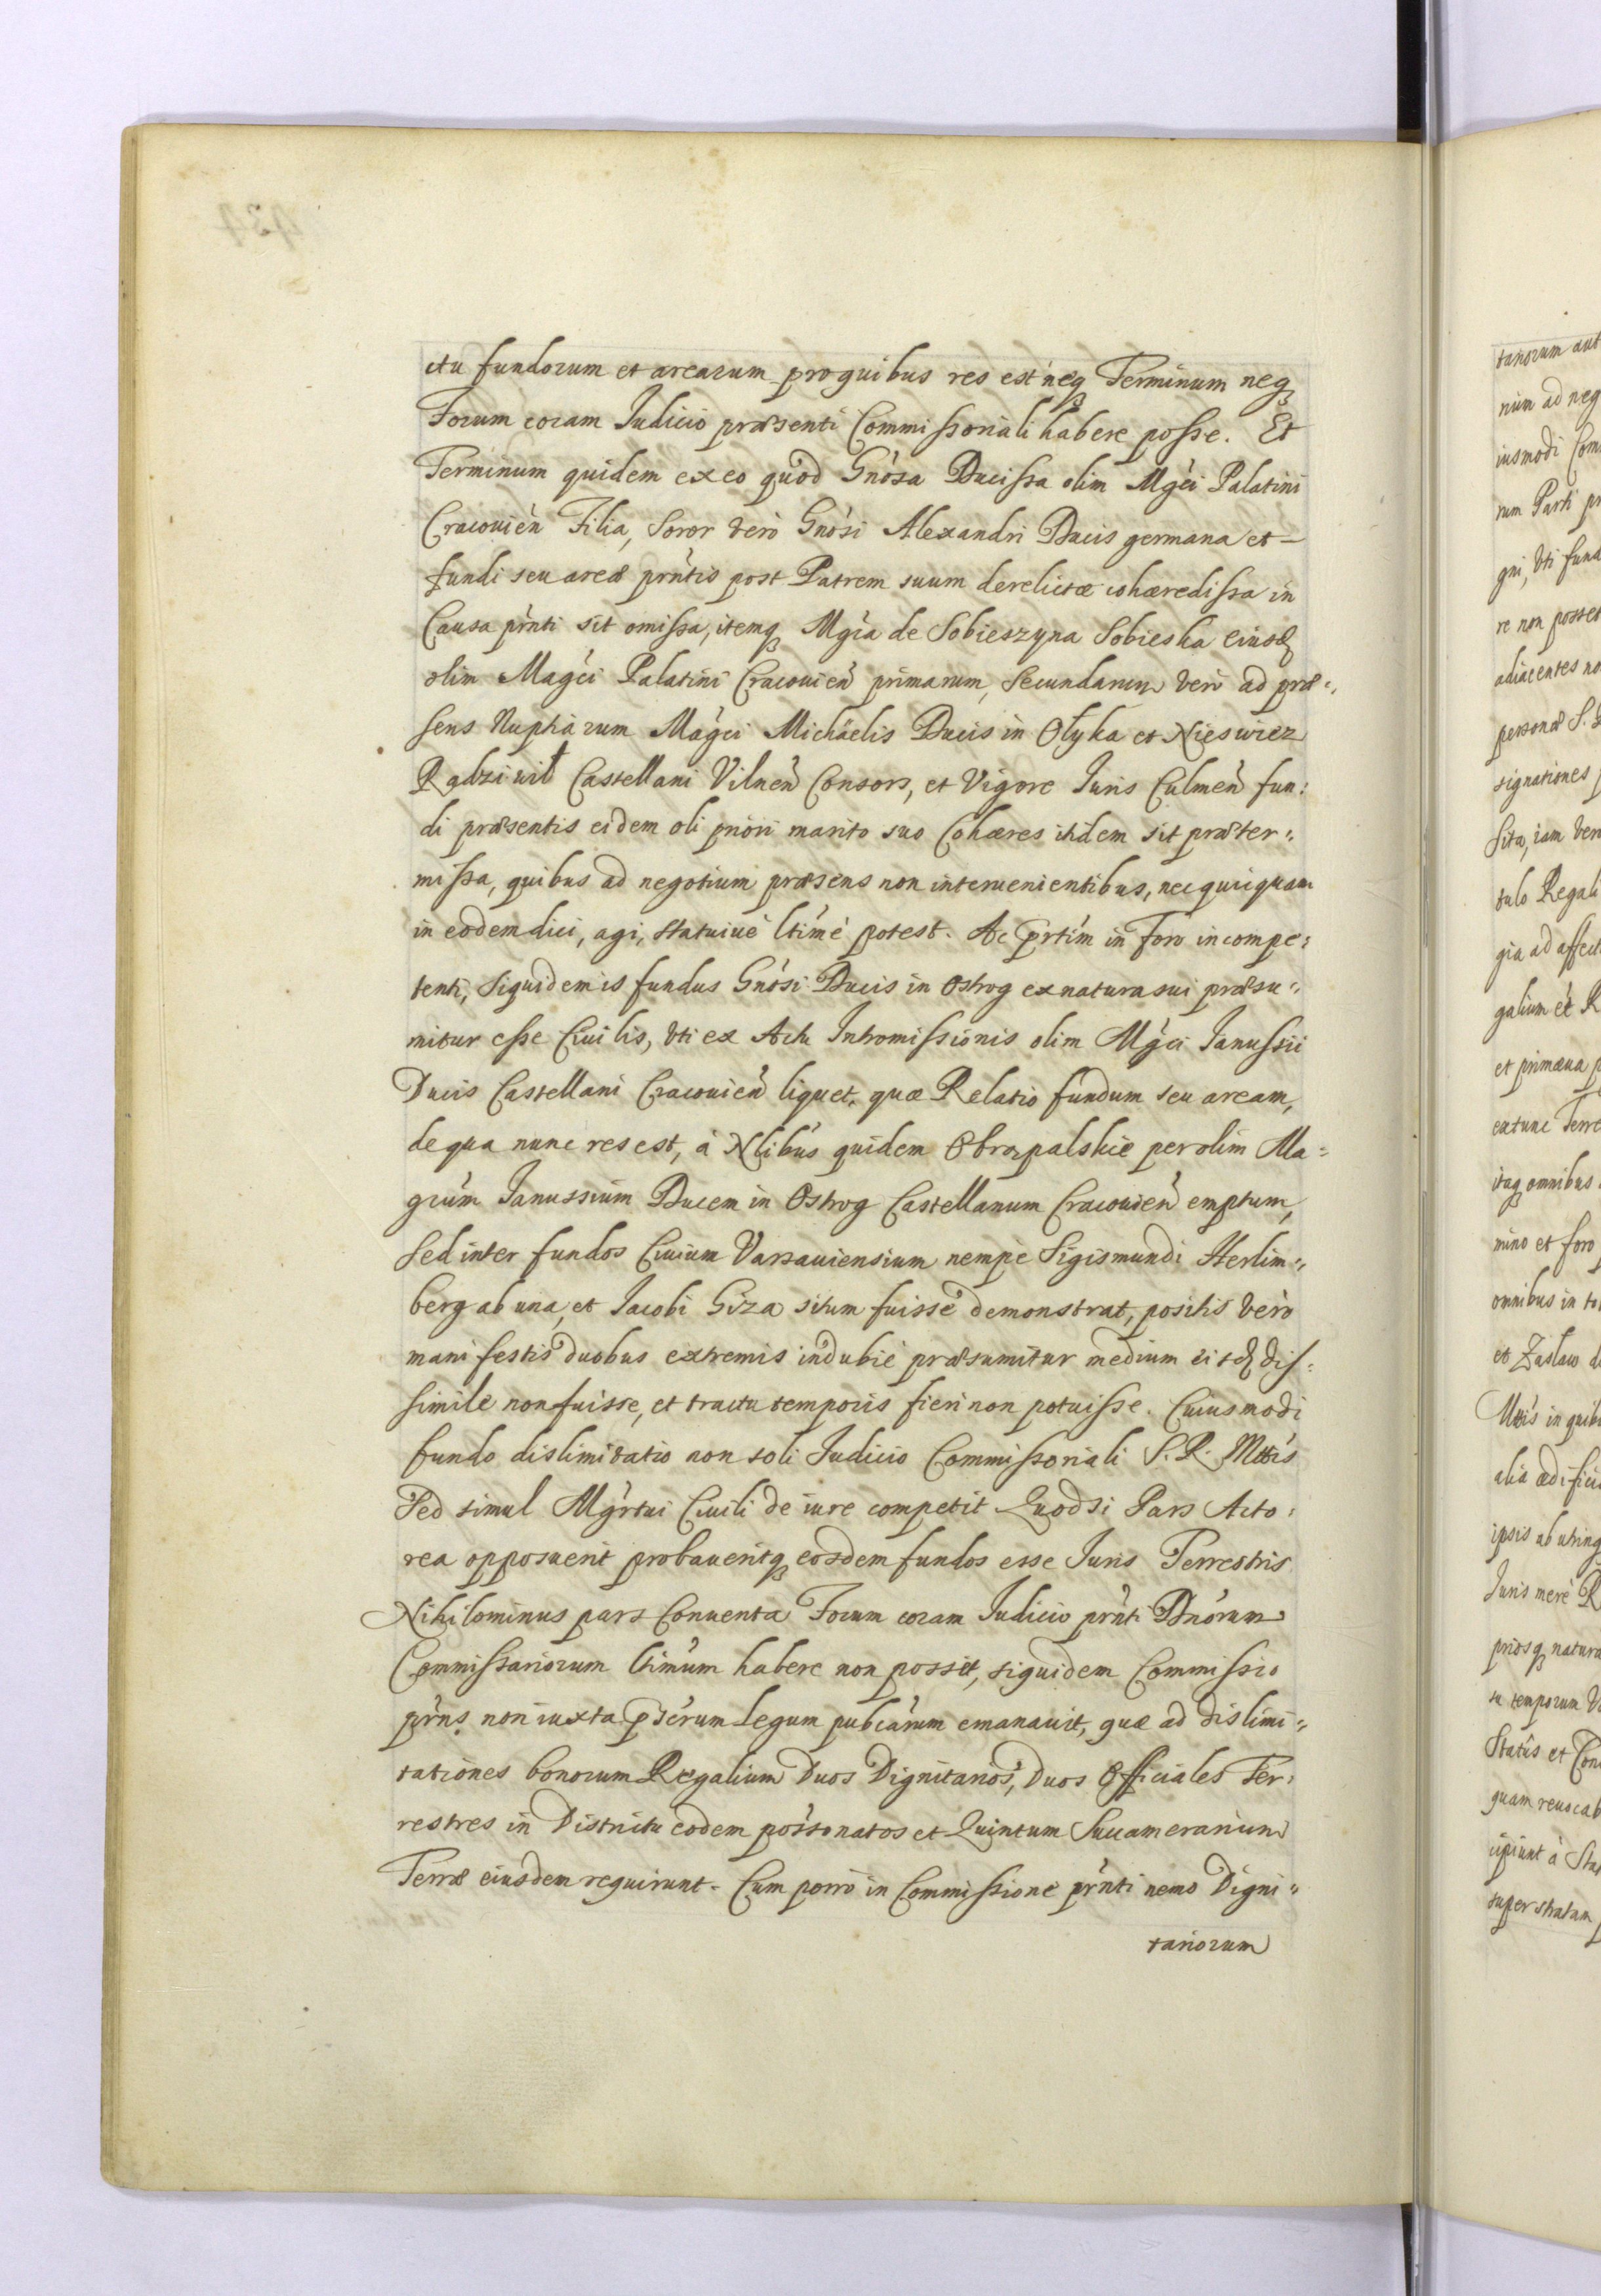 ctu fundorum et arearum proquibus res est neq Terminum neq
Forum coram Judicio præsenti Commissoriali habere posse. Et
Terminum quidem ex eo quod Gnosa Ducissa olim Mgci Palatini
Cracouien Filia, Soror verò Gnosi Alexandri Ducis germana et –
fundi seu areæ prntis post Patrem suum derelictæ cohæredissa in
Causa prnti sit omissa, itemq Mgca de Sobieszyna Sobieska eiusd
olim Magci Palatini Cracouien primarum, Secundarum verò ad præ:,
sens Nuptiarum Magci Michaëlis Ducis in Ołyka et Nieswiez
Radziwił Castellani Vilnen Consors, et Vigore Juris Culmen fun:
di præsentis eidem oli priori marito suo Cohæres itidem sit præter:,
missa, quibus ad negotium præsens non interuenientibus, nec quicquam
in eodem dici, agi, statuiuè ltimè potest. Ac prtim in Foro incompe:
tenti, Siquidem is fundus Gnosi Ducis in Ostrog ex natura sui præsu:,
mitur esse Ciuilis, vti ex Actu Intromissionis olim Mgci Janussii
Ducis Castellani Cracouien liquet, quæ Relatio fundum seu aream,
de qua nunc res est, à Nlibus quidem Obrąpalskie per olim Ma:
gcum Janussium Ducem in Ostrog Castellanum Cracouien emptum,
Sed inter fundos Ciuium Varsauiensium nempè Sigismundi Herlim:,
berg ab una, et Jacobi Giza situm fuisse demonstrat, positis verò
manifestis duobus extremis indubiè præsumitur medium eisd dis:
simile non fuisse, et tractu temporis fieri non potuisse. Cuiusmodi
fundo dislimitatio non soli Judicio Commissoriali S. R. Mttis
Sed simul Mgrtui Ciuili de iure competit Quodsi Pars Acto:
rea opposuerit probaueritq eosdem fundos esse Juris Terrestris
Nihilominus pars Conuenta Forum coram Judicio prnti Dnorum
Commissariorum ltimum habere non possit, siquidem Commissio
prns non iuxta pscrum Legum pubcarum emanauit, quæ ad dislimi:,
tationes bonorum Regalium Duos Dignitarios, Duos Officiales Ter:
restres in Districtu eodem possonatos et Quintum Succamerarium
Terræ eiusdem requirunt. Cum porrò in Commissione prnti nemo Digni:,
tariorum